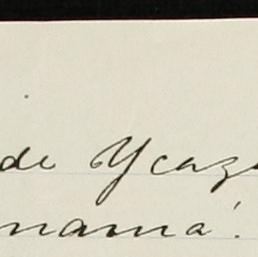 de Ycaz
namá.